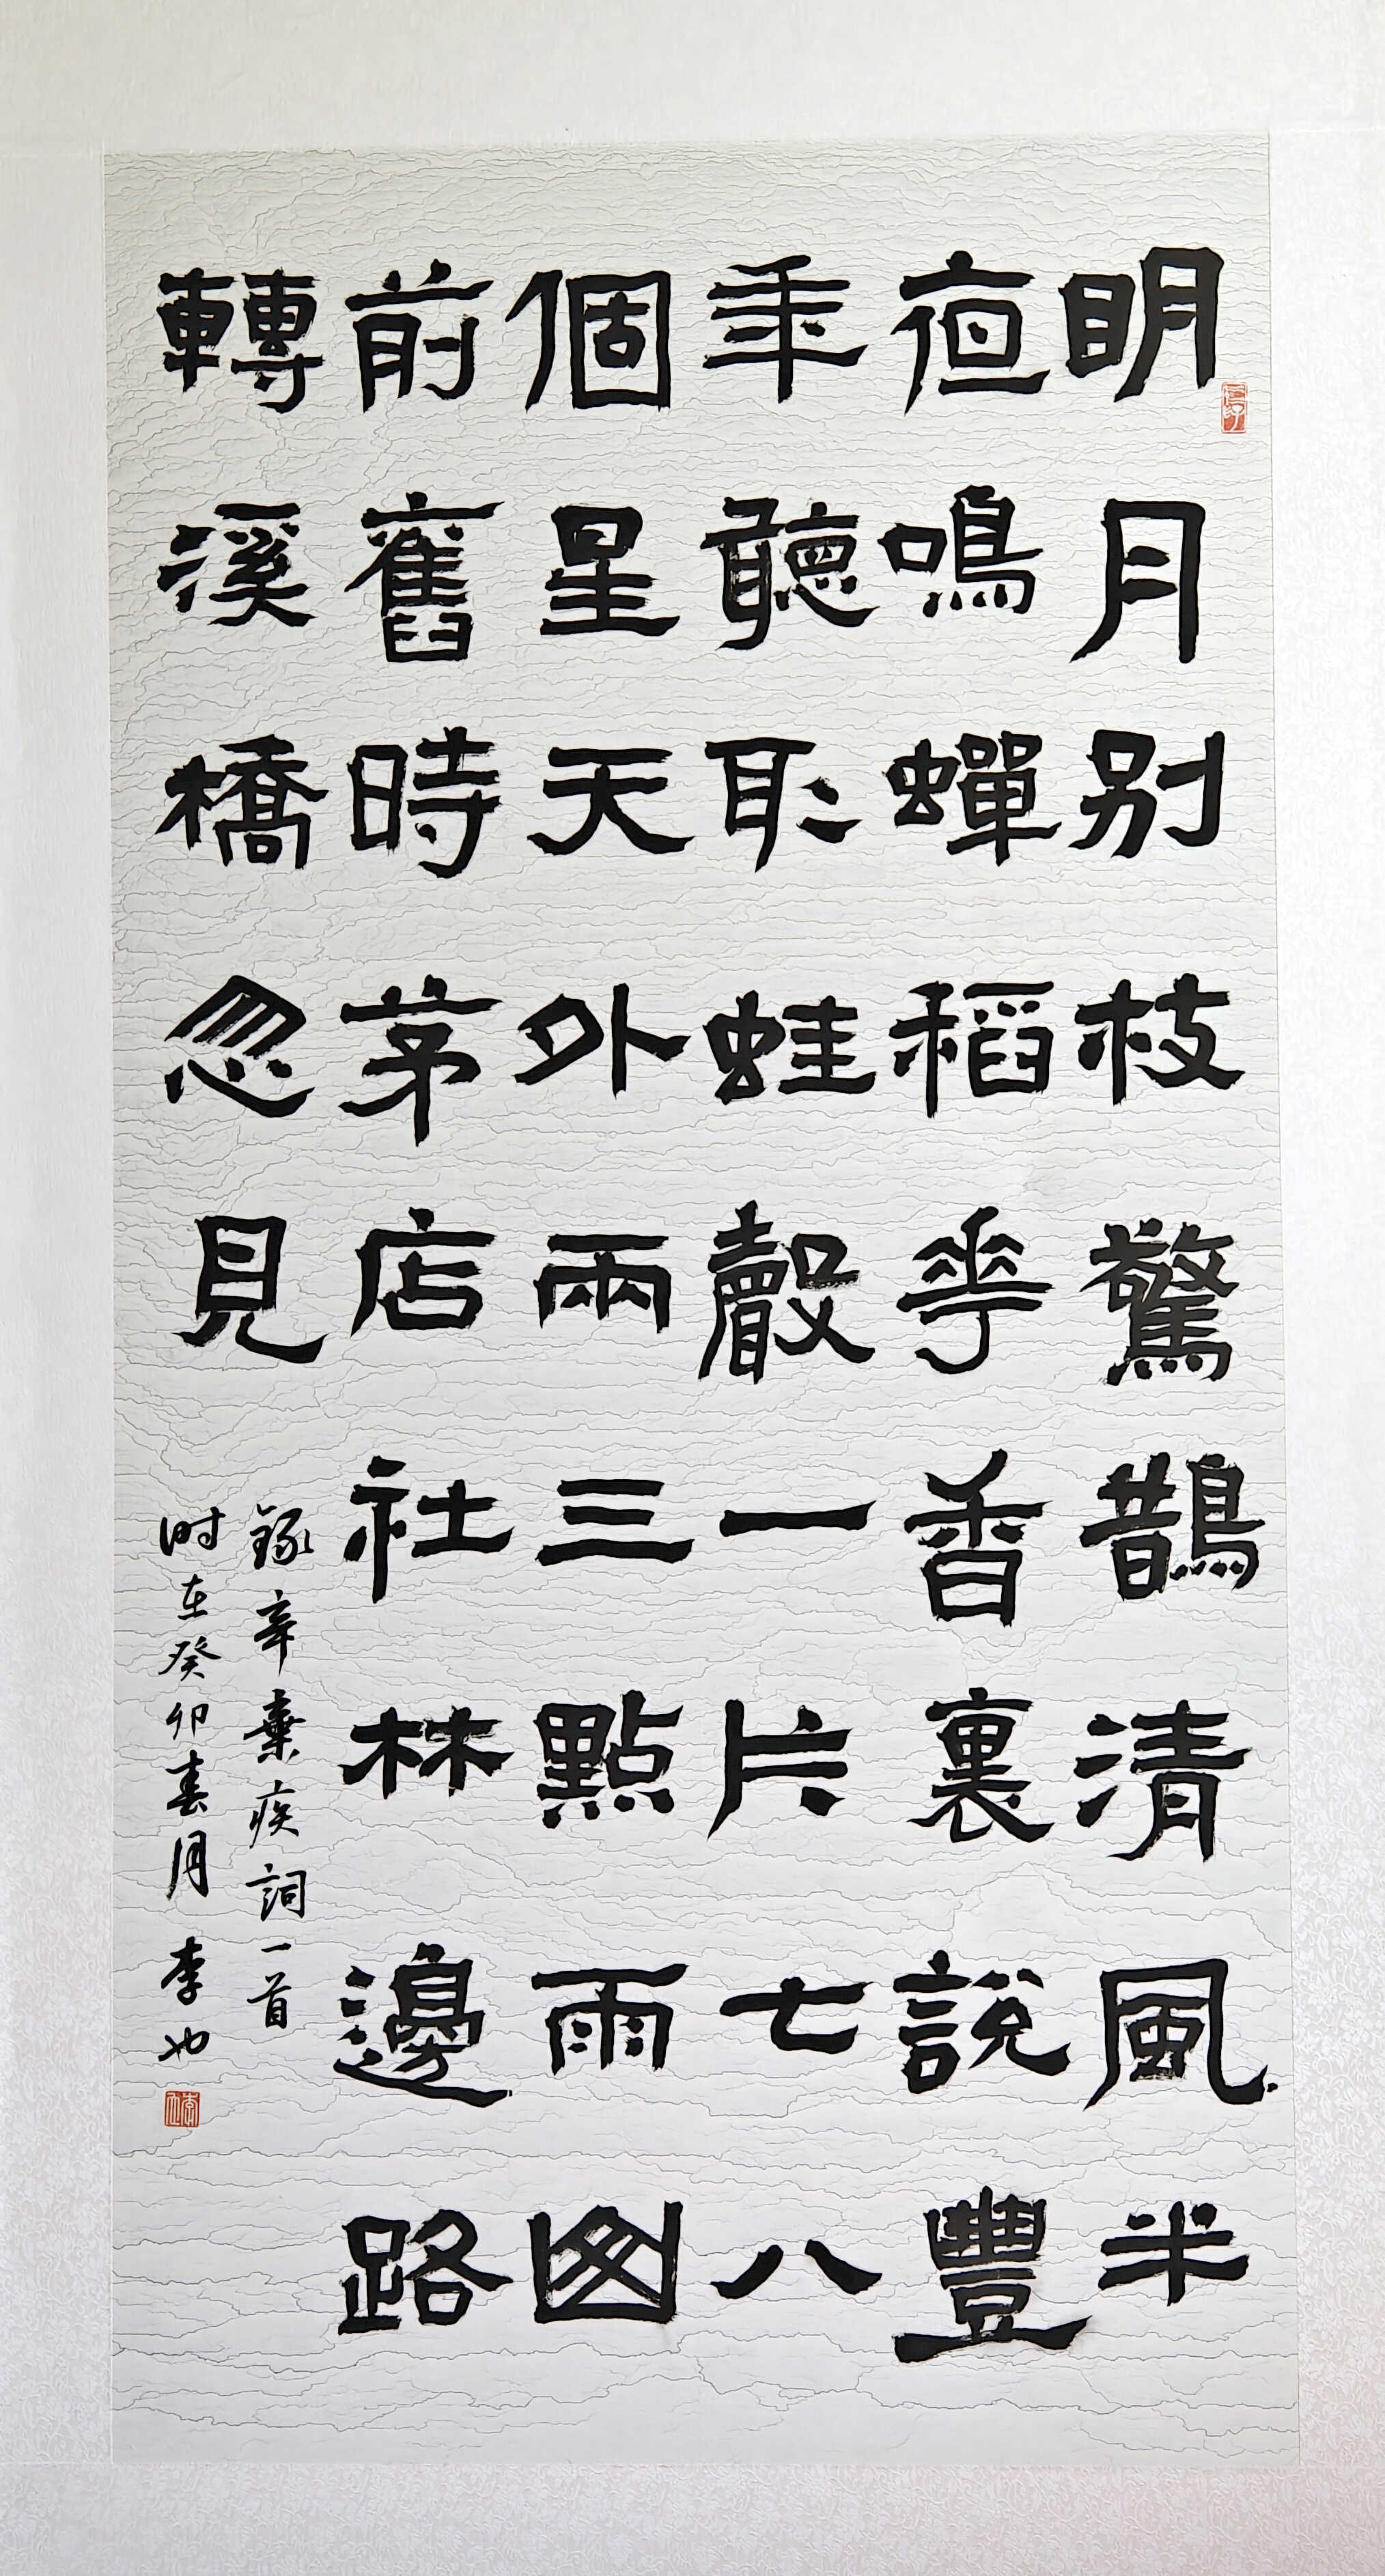 明月别枝驚鵲清風半
夜鳴蟬稻華香裏說豐
年聽取蛙聲一片七八
個星天外兩三點雨
前舊時茅店社林邊路
轉溪橋忽見
錄辛棄疾詞一首
时在癸卯春月 李也
李也